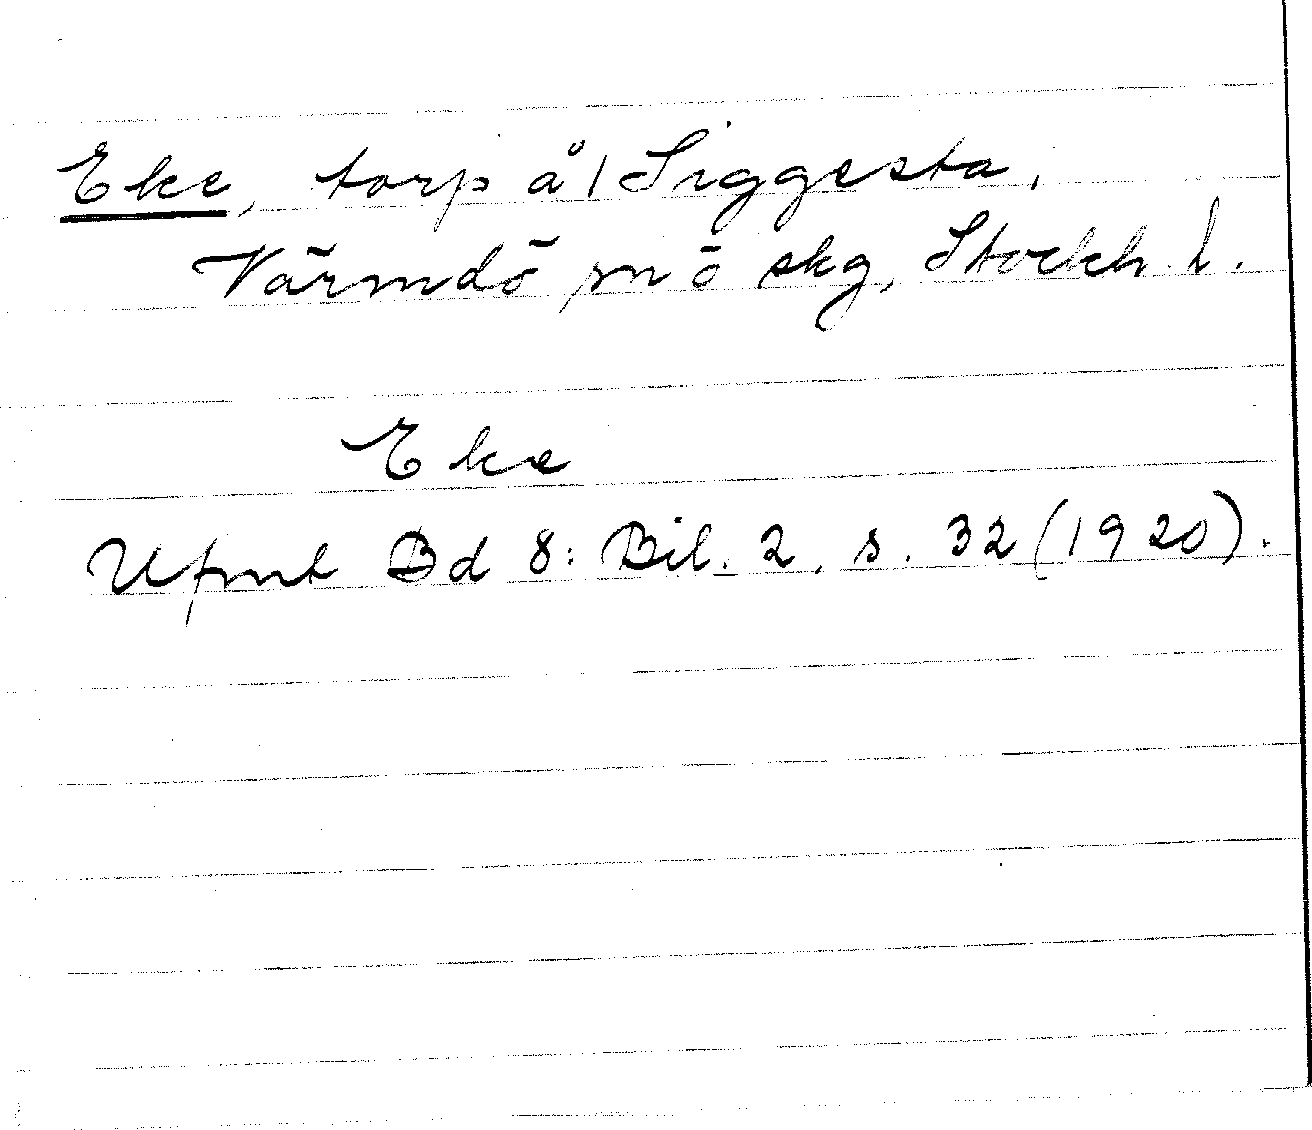 Eke, torp å/ Siggesta,
Värmdö sn ö skg, Stockh. l.
Eke
Ufmt Bd 8: Bil. 2, s. 32 (1920).